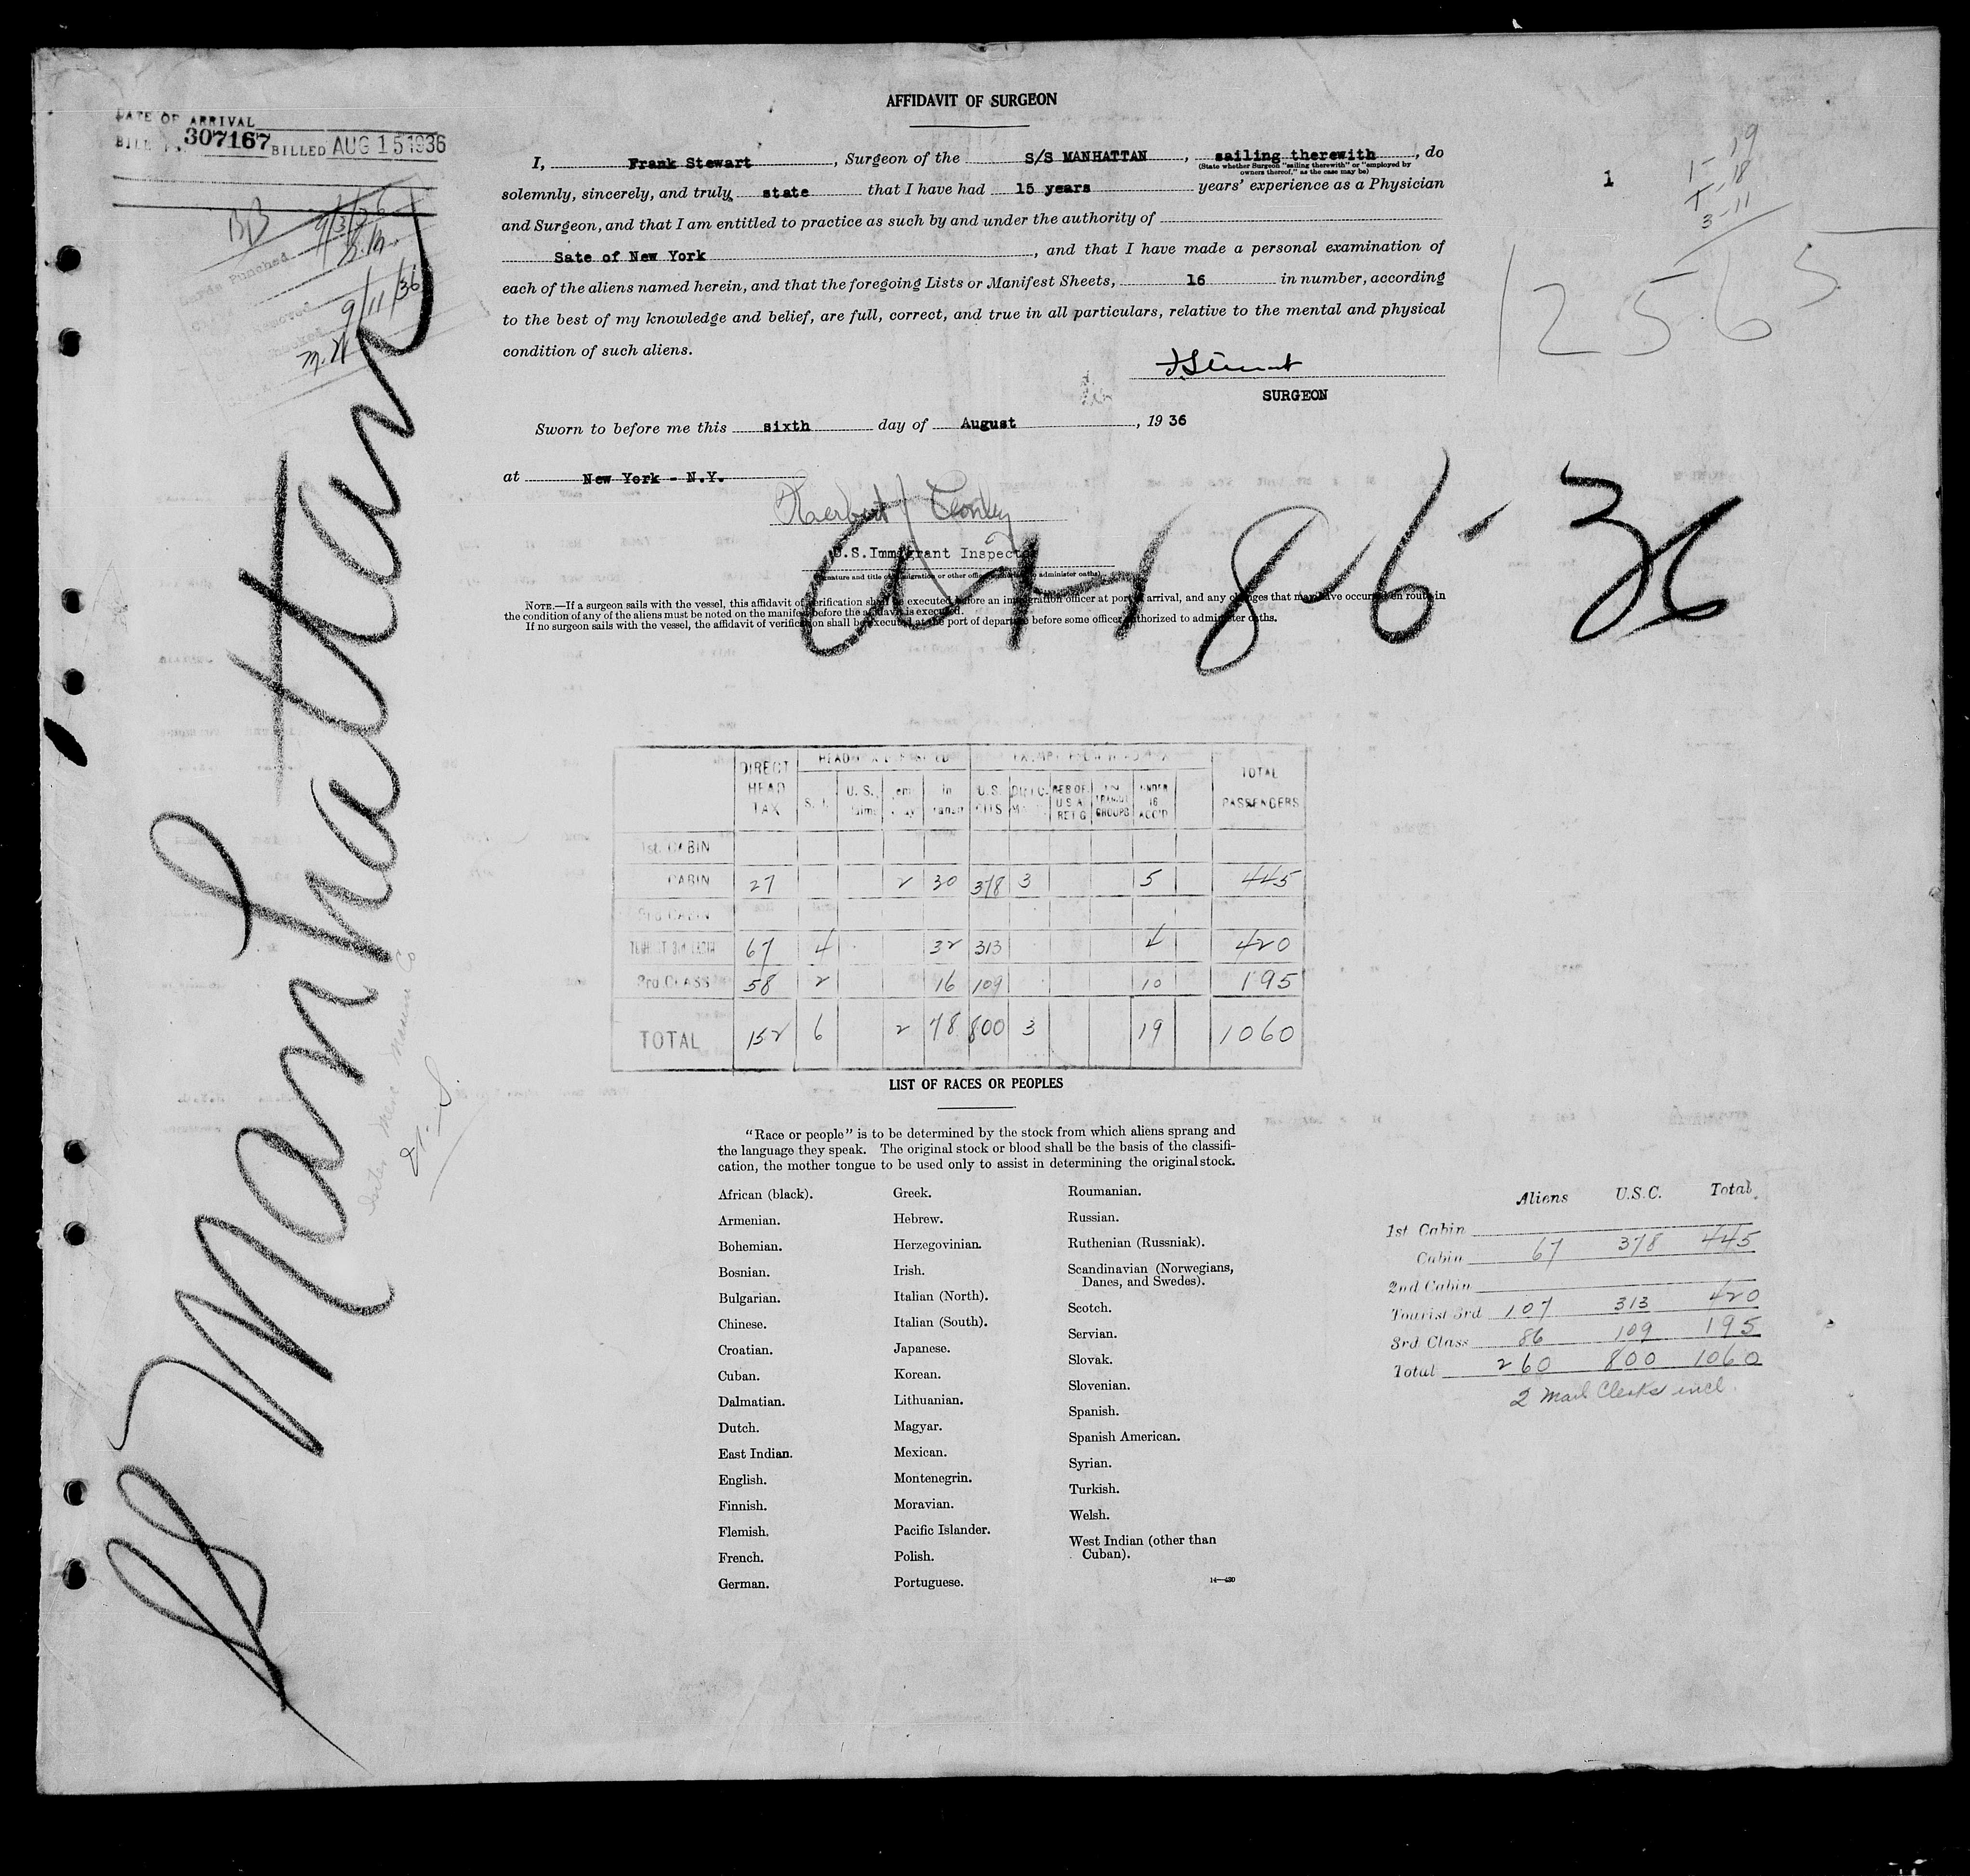 AFFIDAVIT OF SURGEON
DATE OF ARRIVAL
BILL 307167 BILLED AUG 15 1936
I, Frank Stewart, Surgeon of the S/S MANHATTAN, sailing therewith, do
(State whether Surgeon "sailing therewith" or "employed by
owners thereof," as the case may be)
solemnly, sincerely, and truly state that I have had 15 years years' experience as a Physician
and Surgeon, and that I am entitled to practice as such by and under the authority of
Sate of New York, and that I have made a personal examination of
each of the aliens named herein, and that the foregoing Lists or Manifest Sheets, 16 in number, according
to the best of my knowledge and belief, are full, correct, and true in all particulars, relative to the mental and physical
condition of such aliens.
SURGEON
Sworn to before me this sixth day of August, 1936
at New York - N.Y.
U.S.Immigrant Inspector
(Signature and title of immigration or other officer authorized to administer oaths)
NOTE.—If a surgeon sails with the vessel, this affidavit of verification shall be executed before an immigration officer at port of arrival, and any changes that may have occurred en route in
the condition of any of the aliens must be noted on the manifest before the affidavit is executed.
If no surgeon sails with the vessel, the affidavit of verification shall be executed at the port of departure before some officer authorized to administer oaths.
8-6-36
SS Manhattan
BB
Cards Punched
9/11/36
1
19
1-18
T-11
3-11
12565
DIRECT HEAD TAX
S.I.
U.S.
U.S. CITS
RES OF U.S.A. RET'G
TRANSIT GROUPS
UNDER 16 ACC'D
TOTAL PASSENGERS
1st. CABIN
CABIN 27 2 30 378 3 5 445
2nd CABIN
TOURIST 3rd CABIN 67 4 32 313 4 420
3rd CLASS 58 2 16 109 10 195
TOTAL 152 6 2 78 800 3 19 1060
LIST OF RACES OR PEOPLES
"Race or people" is to be determined by the stock from which aliens sprang and
the language they speak. The original stock or blood shall be the basis of the classifi-
cation, the mother tongue to be used only to assist in determining the original stock.
African (black).
Armenian.
Bohemian.
Bosnian.
Bulgarian.
Chinese.
Croatian.
Cuban.
Dalmatian.
Dutch.
East Indian.
English.
Finnish.
Flemish.
French.
German.
Greek.
Hebrew.
Herzegovinian.
Irish.
Italian (North).
Italian (South).
Japanese.
Korean.
Lithuanian.
Magyar.
Mexican.
Montenegrin.
Moravian.
Pacific Islander.
Polish.
Portuguese.
Roumanian.
Russian.
Ruthenian (Russniak).
Scandinavian (Norwegians,
Danes, and Swedes).
Scotch.
Servian.
Slovak.
Slovenian.
Spanish.
Spanish American.
Syrian.
Turkish.
Welsh.
West Indian (other than
Cuban).
14—420
Aliens U.S.C. Total
1st Cabin
Cabin 67 378 445
2nd Cabin
Tourist 3rd 107 313 420
3rd Class 86 109 195
Total 260 800 1060
2 Mail Clerks incl.